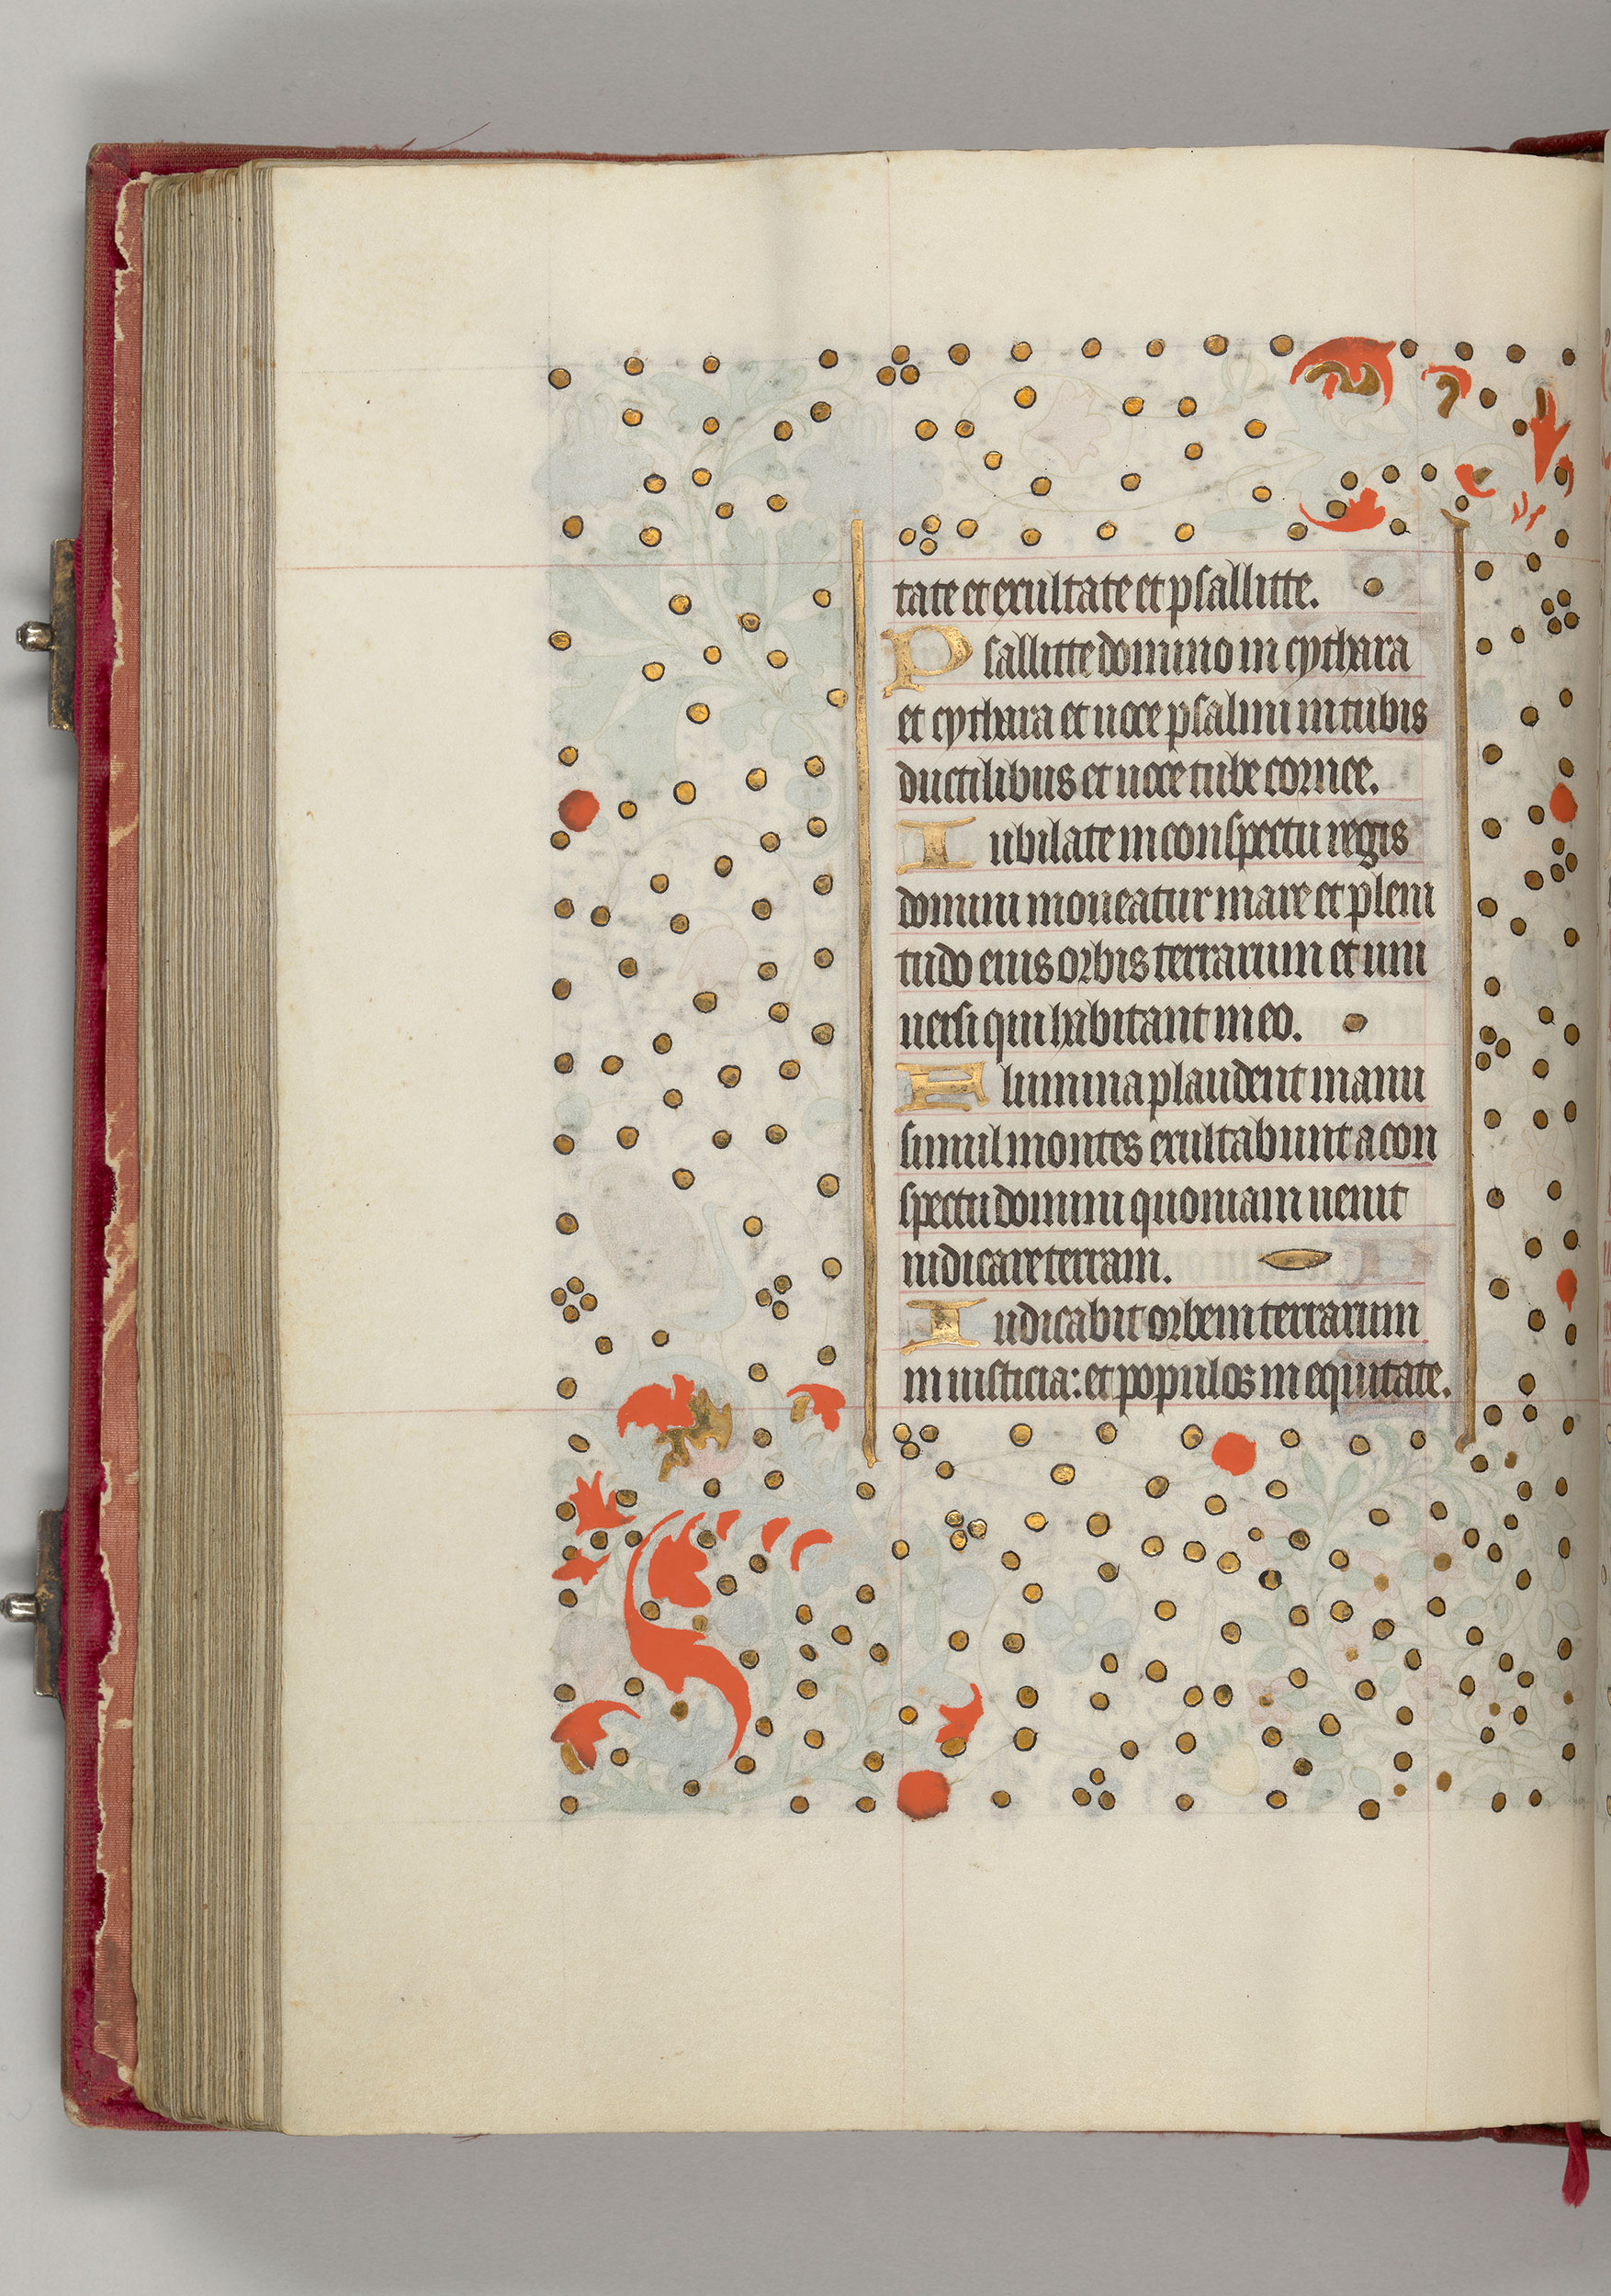 tate et exultate et psallitte.
Psallitte domino in cythara
et cythara et uoce psalmi in tubis
ductilibus et uoce tube cornee.
Iubilate in conspectu regis
domini moueatur mare et pleni
tudo eius orbis terrarum et uni
uersi qui habitant in eo.
Flumina plaudent manu
simul montes exultabunt a con
spectu domini quoniam uenit
iudicare terram.
Iudicabit orbem terrarum
in iusticia: et populos in equitate.